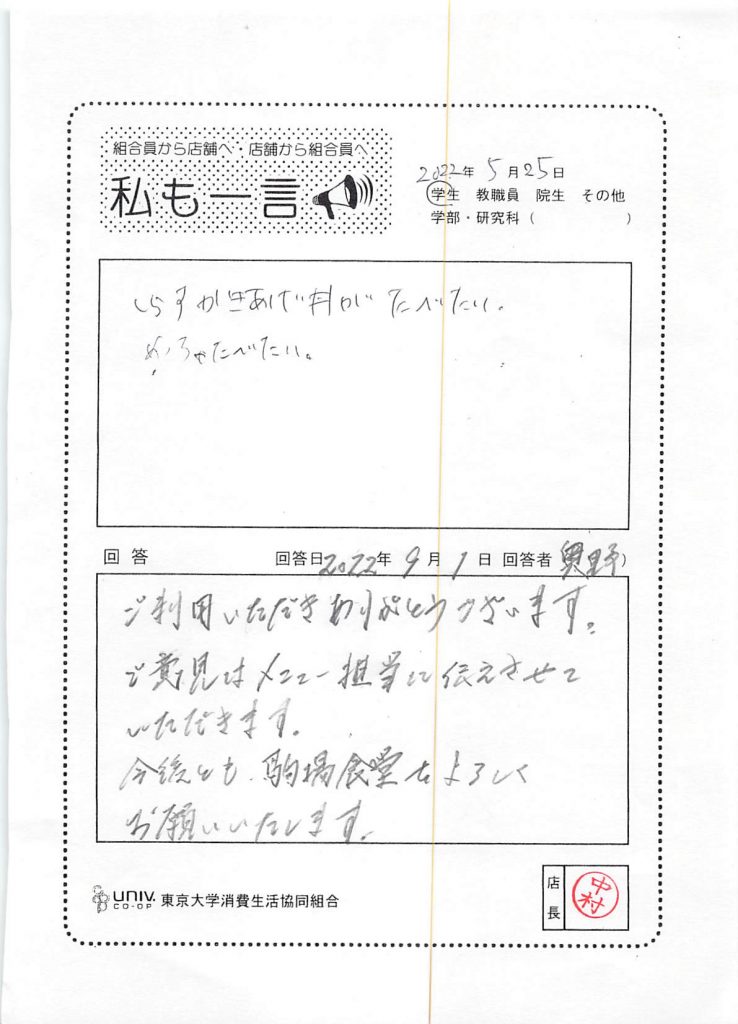 組合員から店舗へ・店舗から組合員へ
私も一言
2022年 5月25日
学生 教職員 院生 その他
学部・研究科( )
しらすかきあげ丼がたべたい。
めっちゃたべたい。
回答 回答日2022年 9月 1日 回答者 奥野)
ご利用いただきありがとうございます。
ご意見はメニュー担当に伝えさせて
いただきます。
今後とも、駒場食堂をよろしく
お願いいたします。
UNIV. CO-OP 東京大学消費生活協同組合
店長 中村